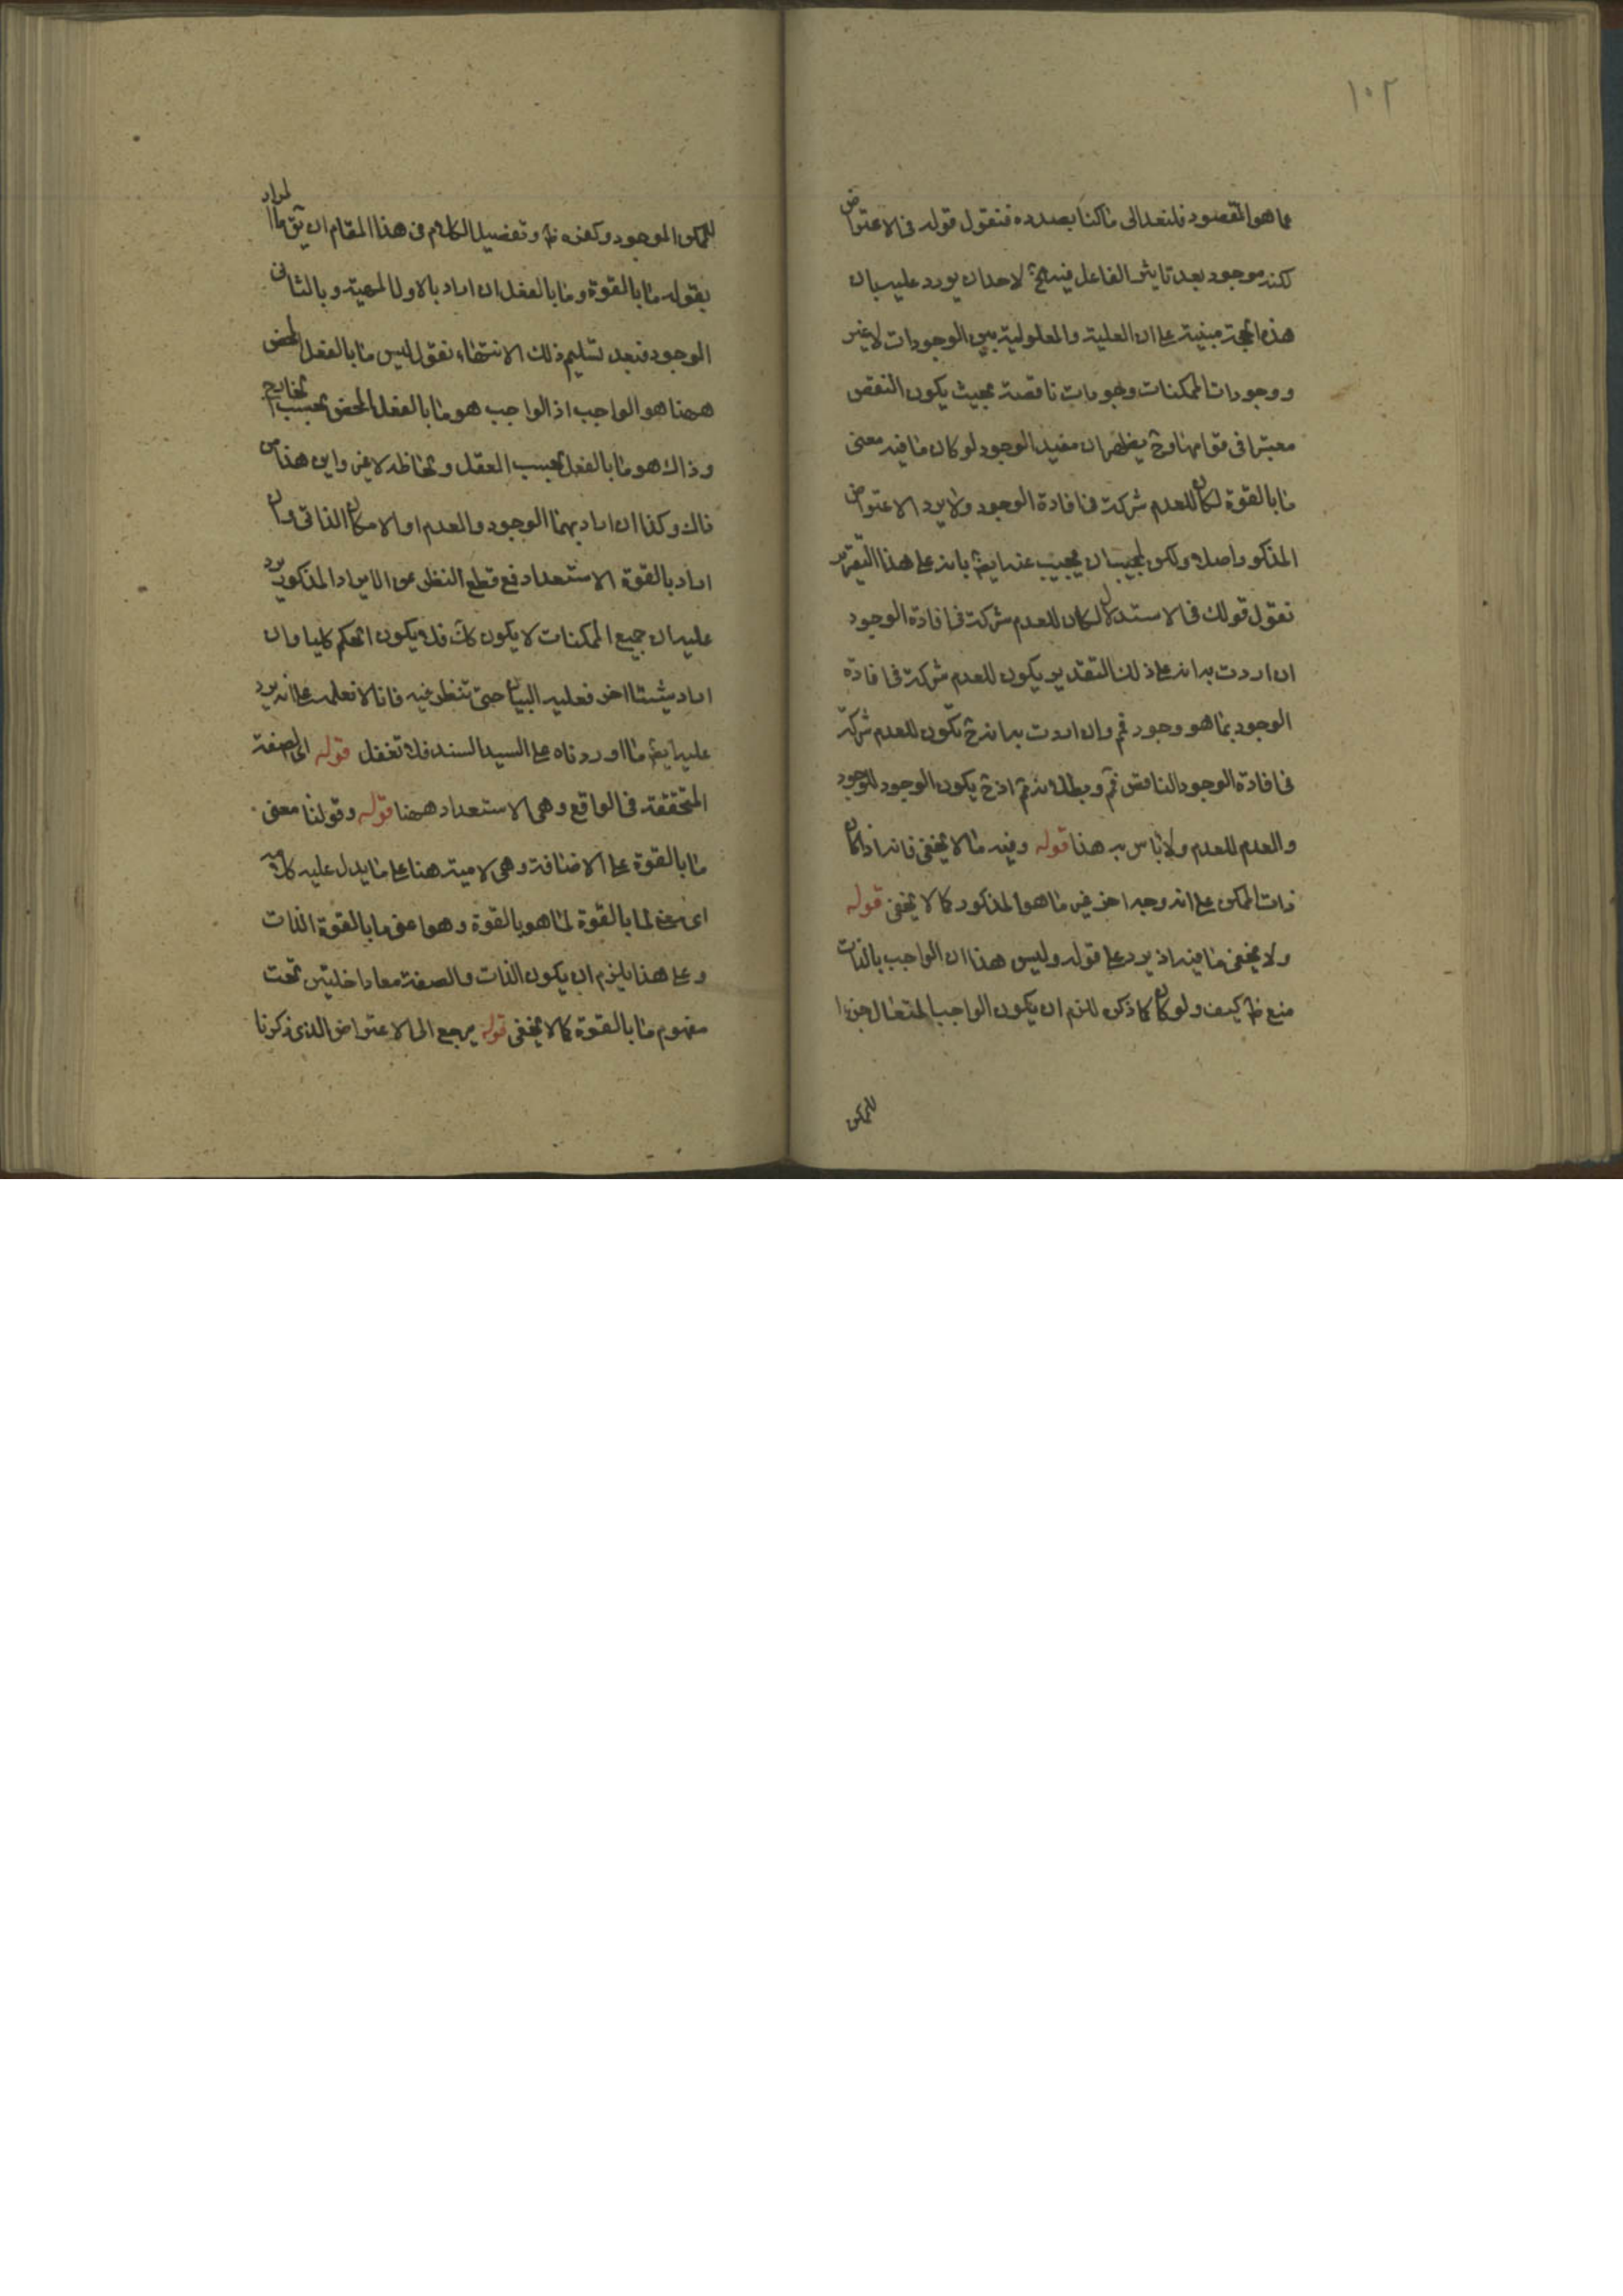 ١٠٢
عما هو المقصود فلنعد الى ما كنا بصدده فنقول قوله فى الاعتراض
لكنه موجود بعد تاثير الفاعل فيه الخ لاحد ان يورد عليه بان
هذه الحجة مبنية على ان العلية والمعلولية بين الوجودات لا غير
ووجودات الممكنات وجودات ناقصة بحيث يكون النقص
معتبرا فى قوامها وح يظهر ان مفيد الوجود لو كان ما فيه معنى
ما بالقوة لكان للعدم شركة فى افادة الوجود ولا يرد الاعتراض
المذكور اصلا ولكن لمجيب ان يجيب عنه ايضا بانه على هذا التقرير
نقول قولك فى الاستدلال لكان للعدم شركة فى افادة الوجود
ان اردت به انه على ذلك التقدير يكون للعدم شركة فى افادة
الوجود بما هو وجود فم وان اردت به انه ح تكون للعدم شركة
فى افادة الوجود الناقص فم وبطلانه تم اذ ح يكون الوجود للوجود
والعدم للعدم ولا باس به هذا قوله وفيه ما لا يخفى فانه اذا كان
ذات الممكن على انه وجه اخر غير ما هو المذكور كما لا يخفى قوله
ولا يخفى ما فيه اذ يرد على قوله وليس هذا ان الواجب بالذات
منع ظ كيف ولو كان كما ذكره للزم ان يكون الواجب المتعال جزءا
للممكن
للممكن الموجود وكفره ظ وتفصيل الكلام فى هذا المقام ان يق ما المراد
بقوله ما بالقوة وما بالفعل ان اراد بالاول المهية وبالثانى
الوجود فبعد تسليم ذلك الانتفاء نقول ليس ما بالفعل المحض
ههنا هو الواجب اذ الواجب هو ما بالفعل المحض بحسب الخارج
وذاك هو ما بالفعل بحسب العقل ولحاظه لا غير واين هذا من
ذاك وكذا ان اراد بهما الوجود والعدم او الامكان الذاتى وان
اراد بالقوة الاستعداد فمع قطع النظر عن الايراد المذكور يرد
عليه ان جميع الممكنات لا يكون كك فلا يكون الحكم كليا وان
اراد شيئا اخر فعليه البيان حتى ننظر فيه فانا لا نعلمه على انه يرد
عليه ايضا ما اوردناه على السيد السند فلا تغفل قوله الى الصفة
المتحققة فى الواقع وهى الاستعداد ههنا قوله وقولنا معنى
ما بالقوة على الاضافة وهى لامية هنا على ما يدل عليه كلامه
اى معنى لما بالقوة لما هو بالقوة وهو اعنى ما بالقوة الذات
وعلى هذا يلزم ان يكون الذات والصفة معا داخلتين تحت
مفهوم ما بالقوة كما لا يخفى قوله يرجع الى الاعتراض الذى ذكرنا